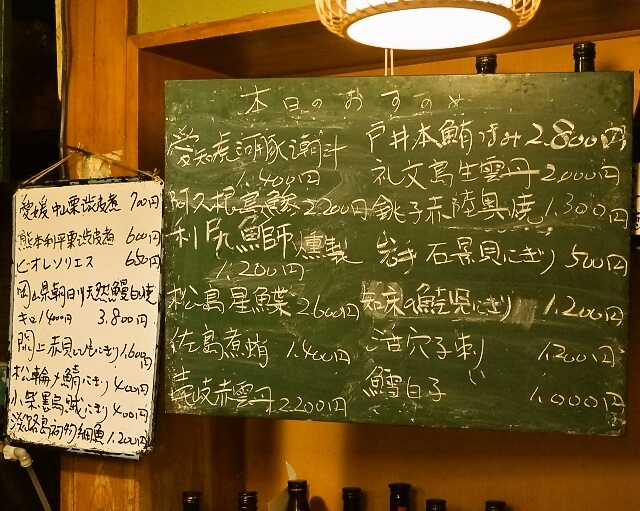 本日のおすすめ
愛知虎河豚潮汁
1.400円
阿久根島鯵 2.200円
利尻鰤 燻製
1.200円
松島星鰈 2600円
佐島煮蛸 1.400円
壱岐赤雲丹 2200円
戸井本鮪つまみ 2.800円
礼文島生雲丹 2.000円
銚子赤陸奥焼 1.300円
岩手 石景貝にぎり 500円
知床の鮭児にぎり 1.200円
活穴子刺 1.200円
鱈白子 1.000円
愛媛 中山栗渋皮煮 700円
熊本利平栗渋皮煮 600円
ビオレソリエス 650円
岡山県朝日川天然鰻白焼
キロ14000円 3.800円
閖上赤貝ひもにぎり 1.600円
松輪〆鯖にぎり 400円
小柴墨烏賊にぎり 400円
淡路島 細魚 1.200円